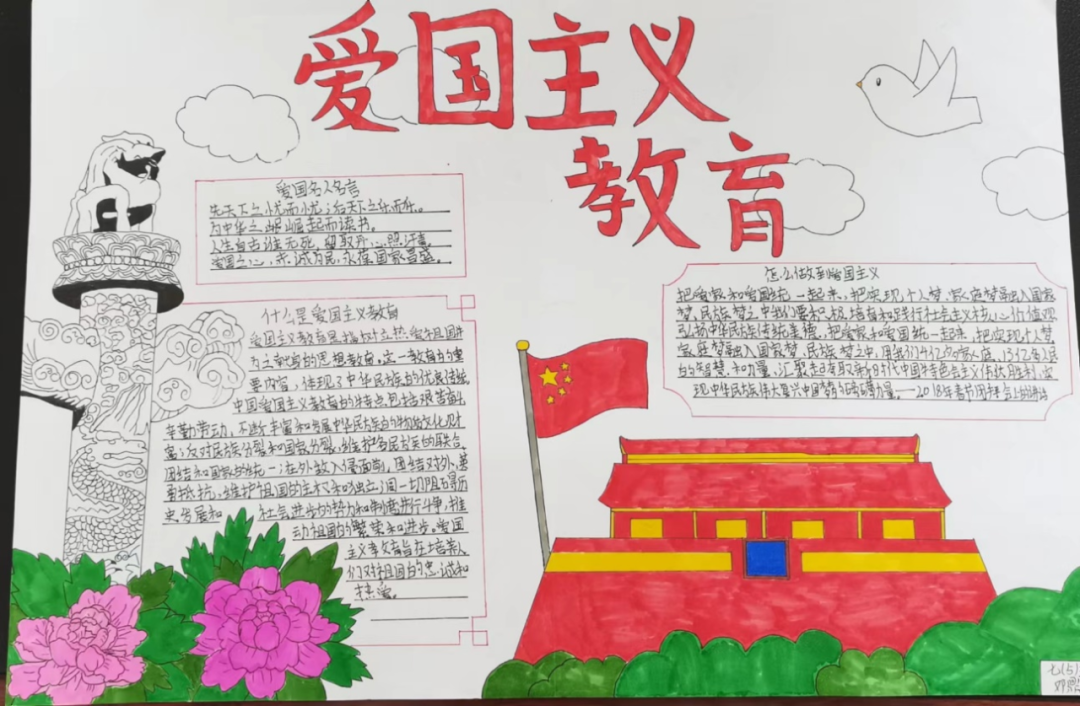 爱国主义
教育
爱国名人名言
先天下之忧而忧;后天下之乐而乐。
为中华之崛起而读书。
人生自古谁无死,留取丹心照汗青。
爱国之心,赤诚为民,永葆国家昌盛。
什么是爱国主义教育
爱国主义教育是指树立热爱祖国并
为之献身的思想教育,这一教育的重
要内容,体现了中华民族的优良传统。
中国爱国主义教育的特点包括艰苦
辛勤劳动,不断丰富和发展中华民族的物质文化财
富;反对民族分裂和国家分裂,维护各民族的联合、
团结和国家的统一;在外敌入侵面前,团结对外,
抵抗,维护祖国的主权和独立;同一切阻碍历
史发展和 社会进步的势力和制度进行斗争,推
动祖国的繁荣和进步。爱国
主义教育旨在培养人
们对祖国的忠诚和
热爱。
怎么做到爱国主义
把爱家和爱国统一起来,把实现个人梦、家庭梦融入国家
梦、民族梦之中我们要积极培育和践行社会主义核心价值观
弘扬中华民族传统美德,把爱家和爱国统一起来,把实现个人梦
家庭梦融入国家梦、民族梦之中,用我们4亿多家庭、13亿多人民
的智慧和力量,汇聚起夺取新时代中国特色社会主义伟大胜利,实
现中华民族伟大复兴中国梦的磅礴力量。——2018年春节团拜会上的讲话
七(5)